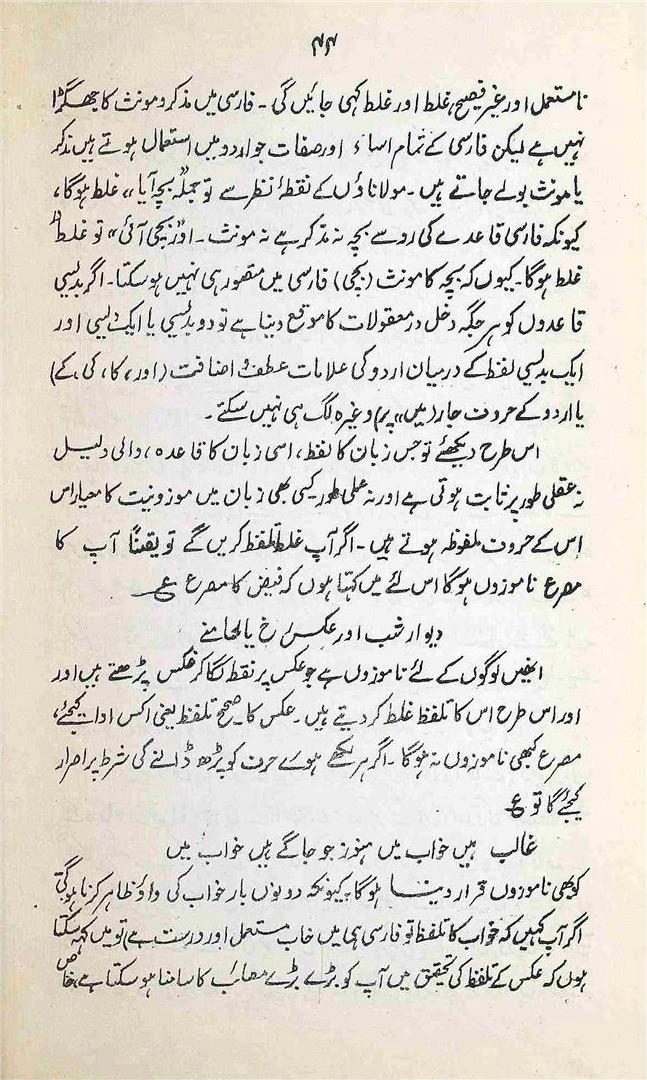 ۴۴
نامستعمل اور غیر فصیح، غلط اور غلط کہی جائیں گی ۔ فارسی میں مذکر و مونث کا جھگڑا
نہیں ہے لیکن فارسی کے تمام اسماء اور صفات جو اردو میں استعمال ہوتے ہیں مذکر
یا مونث بولے جاتے ہیں ۔ مولاناؤں کے نقطۂ نظر سے تو جملہ "بچہ آیا" غلط ہوگا،
کیونکہ فارسی قاعدے کی رو سے بچہ نہ مذکر ہے نہ مونث ۔ اور "بچی آئی" تو غلط
غلط ہوگا ۔ کیوں کہ بچہ کا مونث (بچی) فارسی میں متصور ہی نہیں ہو سکتا ۔ اگر بدیسی
قاعدوں کو ہر جگہ دخل در معقولات کا موقع دینا ہے تو دو بدیسی یا ایک دیسی اور
ایک بدیسی لفظ کے درمیان اردو کی علامات عطف و اضافت (اور، کا، کی، کے)
یا اردو کے حروف جار (میں، پر) وغیرہ لگ ہی نہیں سکتے ۔
اس طرح دیکھئے تو جس زبان کا لفظ، اسی زبان کا قاعدہ، والی دلیل
نہ عقلی طور پر ثابت ہوتی ہے اور نہ عملی طور کسی بھی زبان میں موزونیت کا معیار اس
اس کے حروف ملفوظہ ہوتے ہیں ۔ اگر آپ غلط تلفظ کریں گے تو یقیناً آپ کا
مصرع ناموزوں ہوگا اس لئے میں کہتا ہوں کہ فیض کا مصرع ع
دیوار شب اور عکس رخ یار سامنے
انھیں لوگوں کے لئے ناموزوں ہے جو عکس پر نقطہ لگا کر غکس پڑھتے ہیں اور
اور اس طرح اس کا تلفظ غلط کر دیتے ہیں ۔ عکس کا صحیح تلفظ یعنی اکس ادا کیجئے،
مصرع کبھی ناموزوں نہ ہوگا ۔ اگر ہر لکھے ہوئے حرف کو پڑھ ڈالنے کی شرط پر اصرار
کیجئے گا تو ع
غالب ہیں خواب میں ہنوز جو جاگے ہیں خواب میں
کو بھی ناموزوں قرار دینا ہوگا ۔ کیونکہ دونوں بار خواب کی واؤ ظاہر کرنا ہوگی
اگر آپ کہیں کہ خواب کا تلفظ تو فارسی ہی میں خاب مستعمل اور درست ہے، تو میں کہہ سکتا
ہوں کہ عکس کے تلفظ کی تحقیق میں آپ کو بڑے بڑے مصائب کا سامنا ہو سکتا ہے، خاص